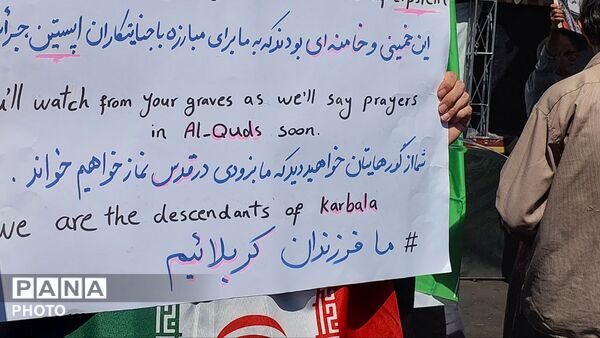 Epstein
این خمینی و خامنه ای بودند که به ما برای مبارزه با جنایتکاران اپستین
'll watch from your graves as we'll say prayers
in Al-Quds soon.
شما از گورهایتان خواهید دید که ما بزودی در قدس نماز خواهیم خواند.
we are the descendants of Karbala
# ما فرزندان کربلائیم
PANA
PHOTO